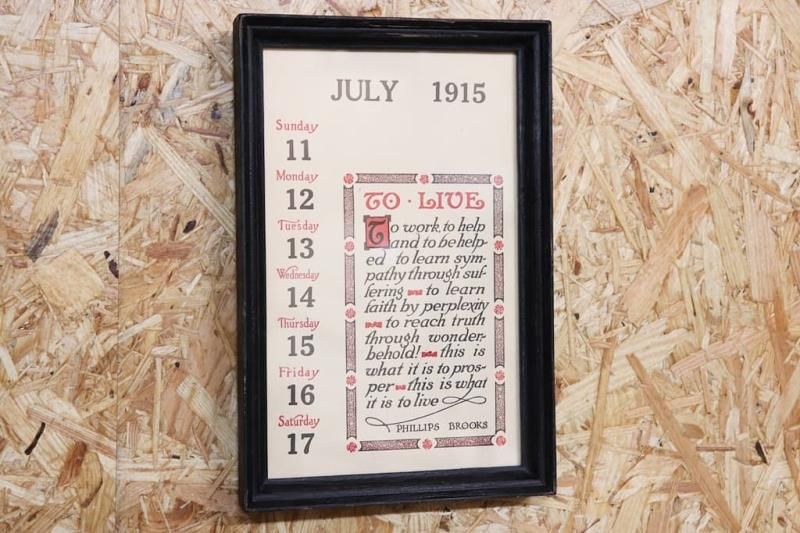 JULY 1915
Sunday
11
Monday
12
Tuesday
13
Wednesday
14
Thursday
15
Friday
16
Saturday
17
TO · LIVE
To work, to help
and to be help-
ed to learn sym-
pathy through suf-
fering to learn
faith by perplexity
to reach truth
through wonder-
behold! this is
what it is to pros-
per this is what
it is to live
PHILLIPS BROOKS